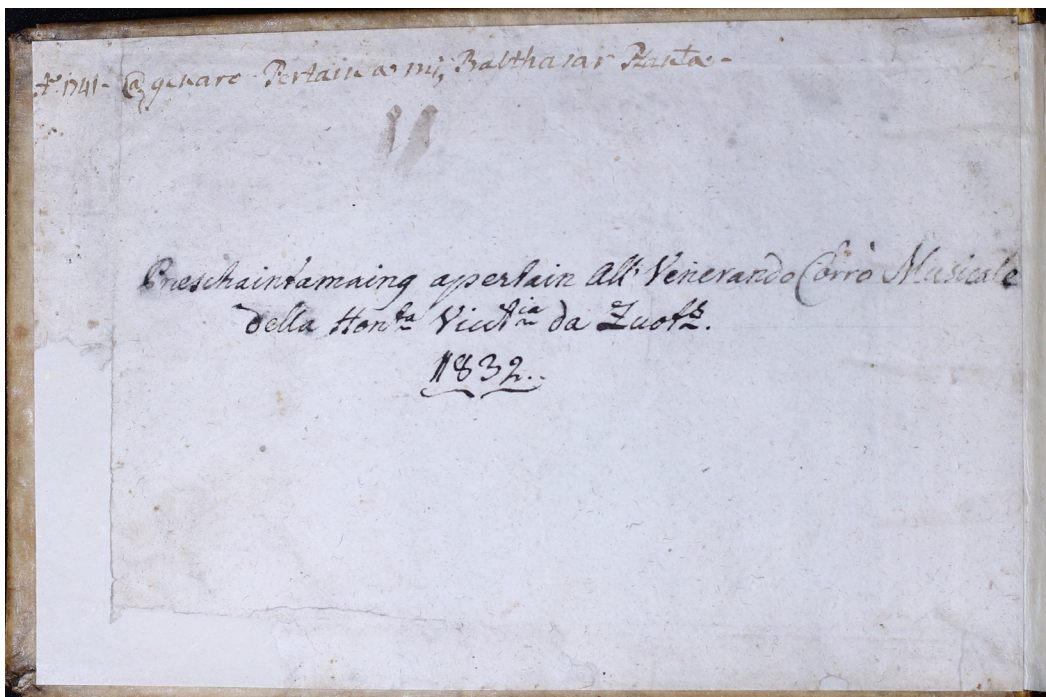 Aº. 1741 - @ genaro - Pertain a mi, Balthasar Planta -
Preschaintamaing apertain All' Venerando Corro Musicale
della Honta Vicctia da Zuotz.
1832..